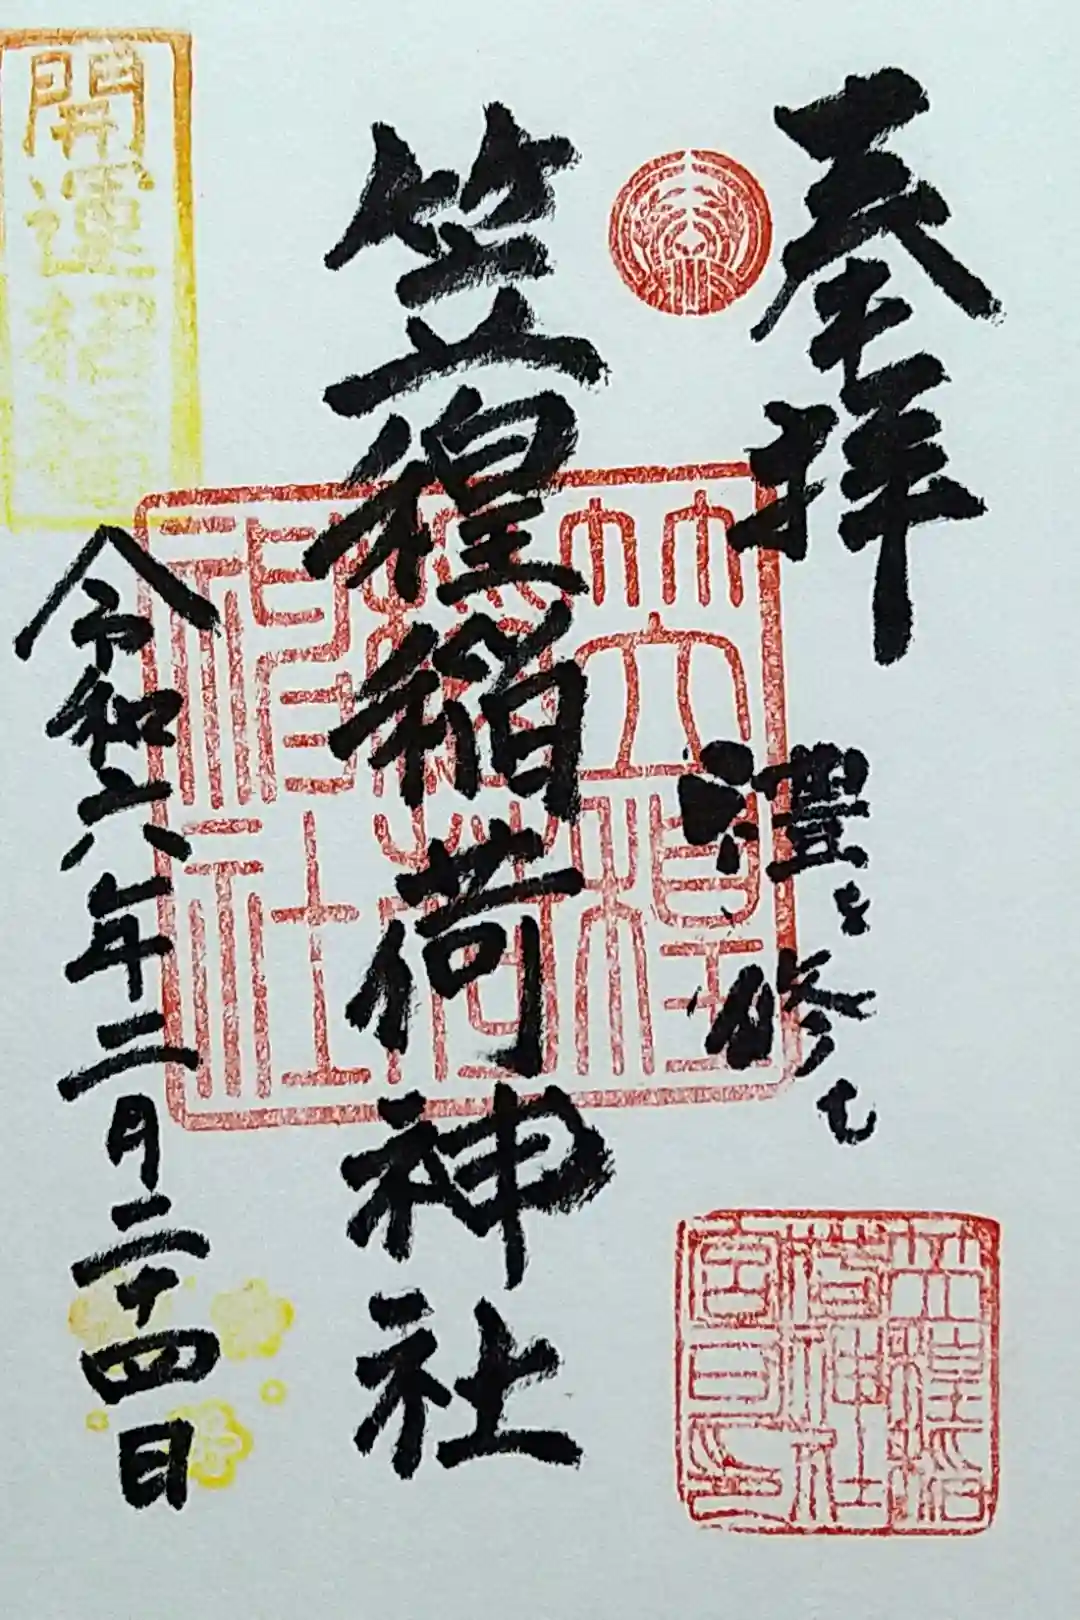 奉拝
禮を修む
笠䅣稲荷神社
令和六年二月二十四日
開運招福
笠䅣稲荷神社
笠䅣稲荷神社宮司之印